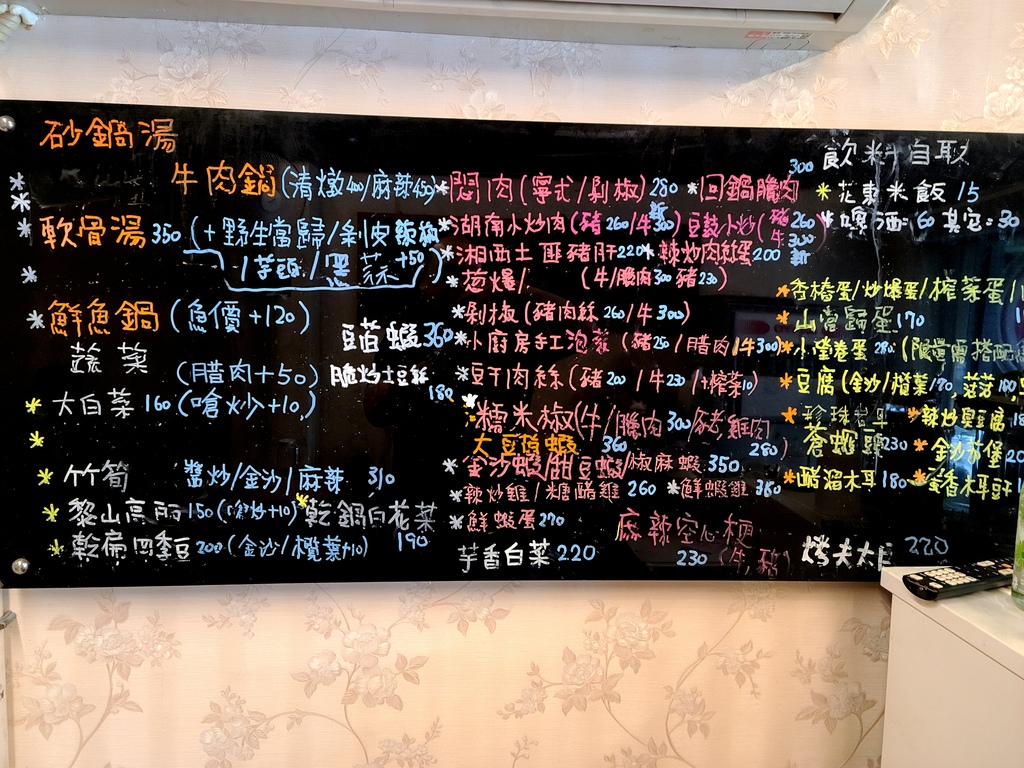 砂鍋湯
牛肉鍋(清燉400/麻辣450)
軟骨湯350(+野生當歸/剁皮辣椒
/芋頭/黑蒜+50)
鮮魚鍋(魚價+120)
蔬菜
(腊肉+50)
大白菜160(嗆炒+10)
竹筍 醬炒/金沙/麻辣 310
黎山高丽150(嗆炒+10)
乾扁四季豆200(金沙/欖菜+10)
豆苗蝦360
脆炒土豆絲180
乾鍋白花菜190
悶肉(寧式/剁椒)280
回鍋臘肉300
湖南小炒肉(豬260/牛300)
豆豉小炒(豬260
牛300
湘西土匪豬肝220
辣炒肉絲蛋200
葱爆/ (牛/臘肉300豬230)
剁椒(豬肉絲260/牛300)
小廚房手工泡菜(豬250/腊肉/牛300)
豆干肉絲(豬200/牛230/+榨菜10)
糯米椒(牛/臘肉300/豬,雞肉280)
大豆伴蝦360
金沙蝦/甜豆蝦/椒麻蝦350
辣炒雞/糖醋雞260
鮮蝦雞380
鮮蝦蛋270
麻辣空心梗
230(牛,豬)
芋香白菜220
飲料自取
花東米飯15
啤酒:60其它:30
香椿蛋/炒爆蛋/榨菜蛋/
山當歸蛋170
豆腐(金沙/欖菜190,
辣炒臭豆腐
蒼蠅頭230
醋溜木耳180
烤夫 220